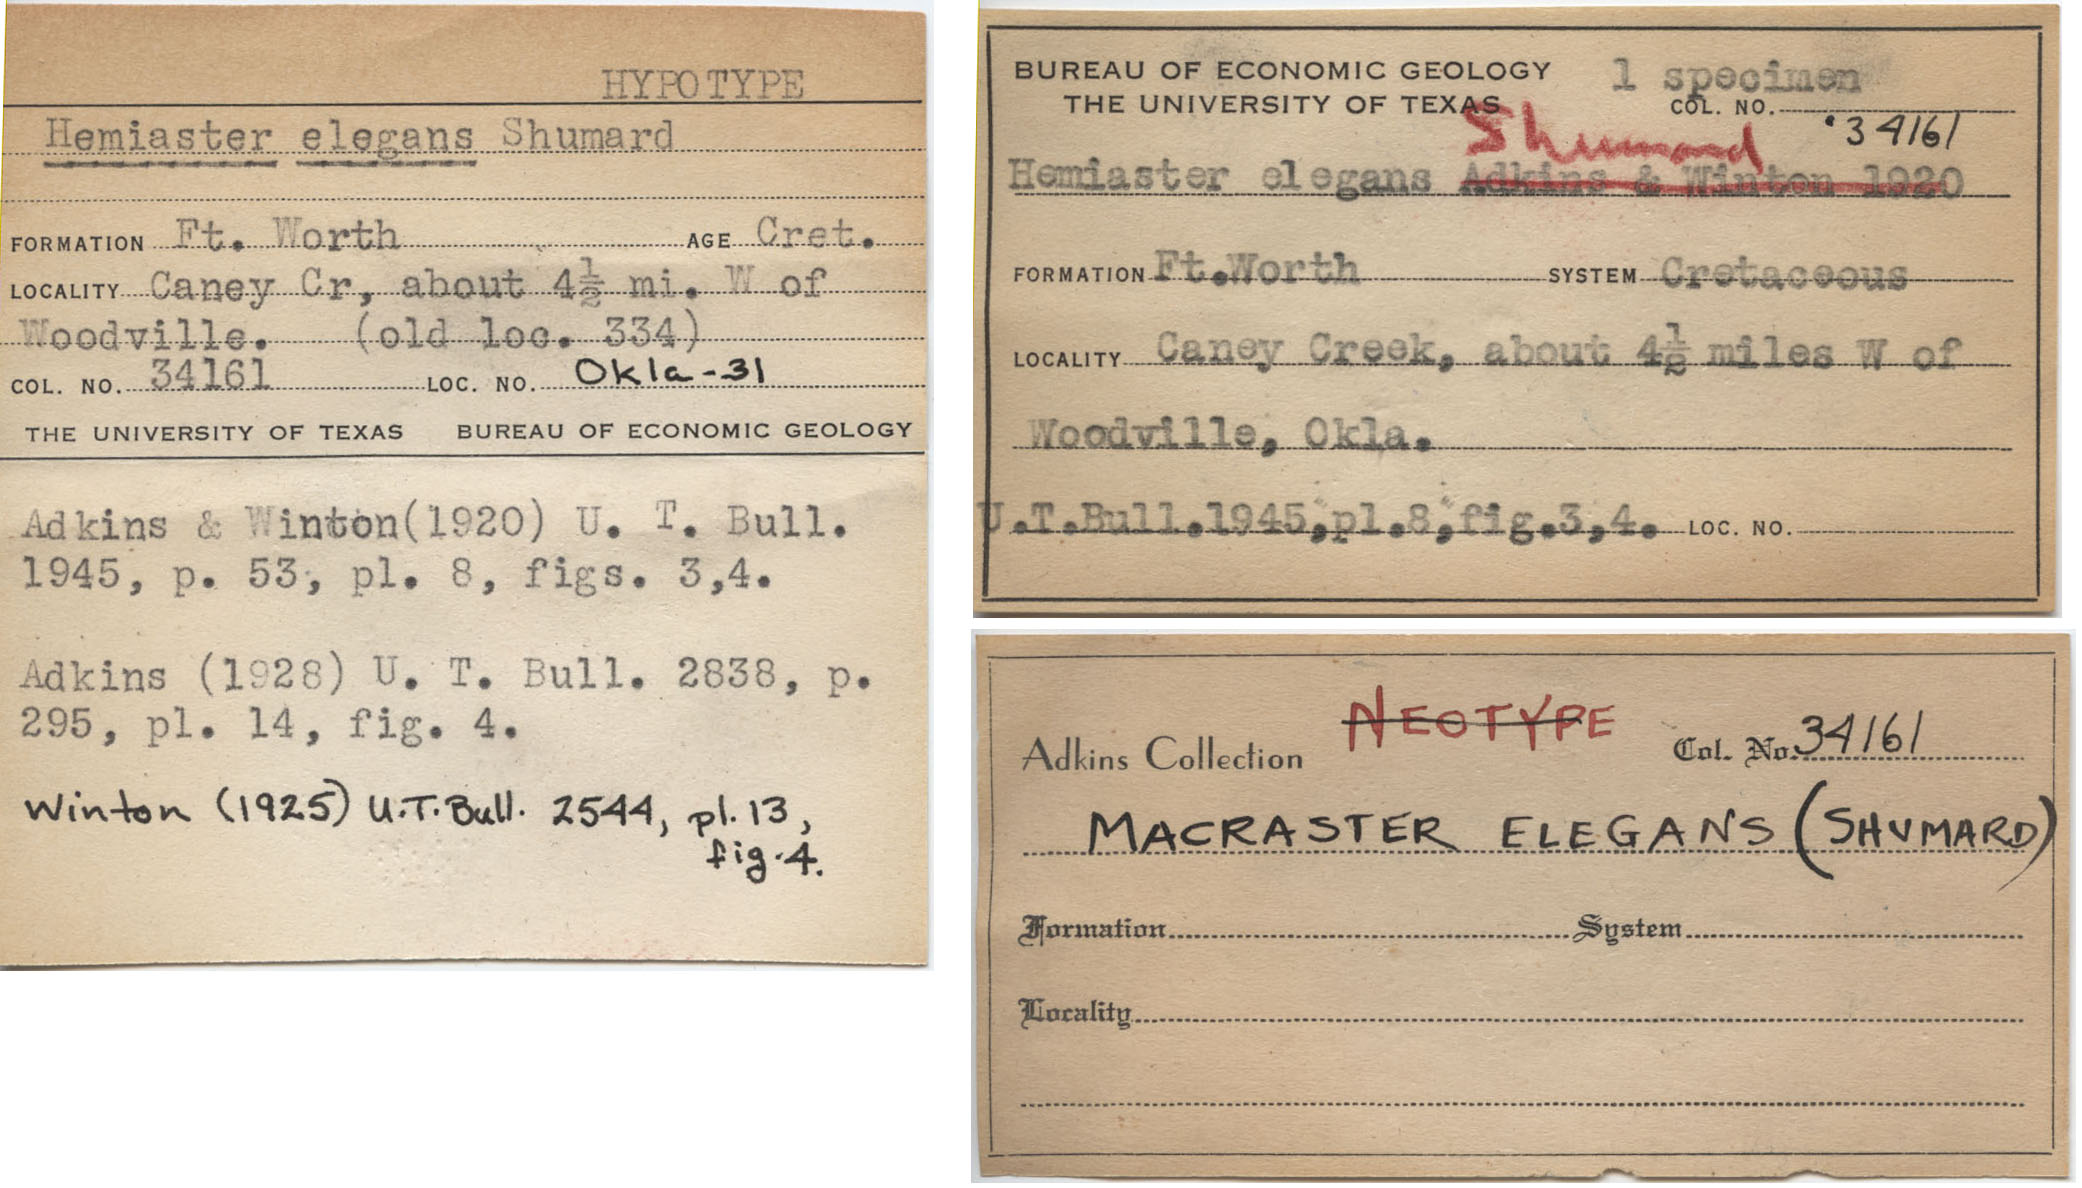 HYPOTYPE
Hemiaster elegans Shumard
FORMATION Ft. Worth AGE Cret.
LOCALITY Caney Cr, about 4½ mi. W of
Woodville. (old loc. 334)
COL. NO. 34161 LOC. NO. Okla-31
THE UNIVERSITY OF TEXAS BUREAU OF ECONOMIC GEOLOGY
Adkins & Winton(1920) U. T. Bull.
1945, p. 53, pl. 8, figs. 3,4.
Adkins (1928) U. T. Bull. 2838, p.
295, pl. 14, fig. 4.
Winton (1925) U.T. Bull. 2544, pl. 13,
fig. 4.
BUREAU OF ECONOMIC GEOLOGY 1 specimen
THE UNIVERSITY OF TEXAS COL. NO. 34161
Shumard
Hemiaster elegans Adkins & Winton 1920
FORMATION Ft.Worth SYSTEM Cretaceous
LOCALITY Caney Creek, about 4½ miles W of
Woodville, Okla.
U.T.Bull.1945,pl.8,fig.3,4. LOC. NO.
NEOTYPE
Adkins Collection Col. No. 34161
MACRASTER ELEGANS (SHUMARD)
Formation System
Locality